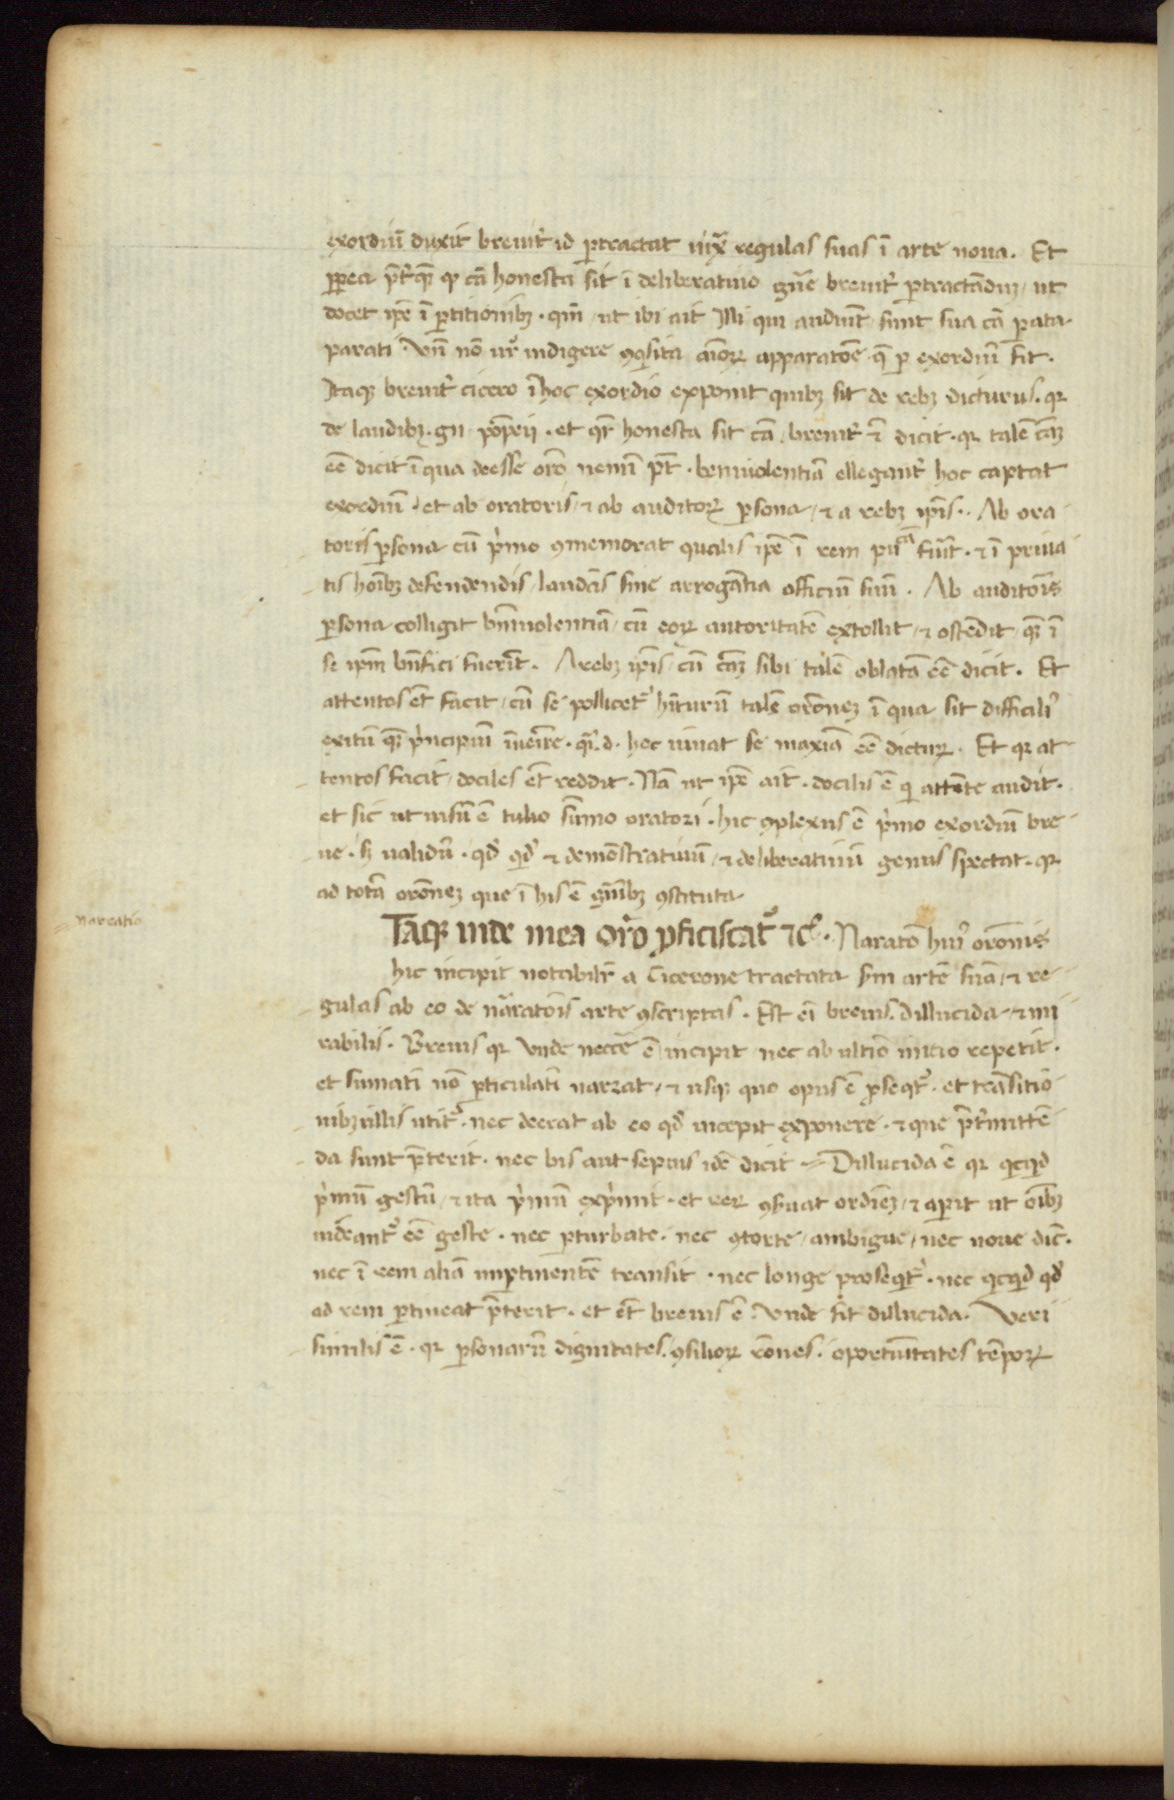 exordiũ duxit breuit᷑ id ꝑtractat iuxͣ regulas suas ĩ arte noua. Et
p̃t᷑qꝫ ꝙ cã honesta sit ĩ deliberatiuo gñe breuit᷑ ꝑtractãduꝫ, ut
docet ip̃e ĩ ꝑtitionibꝫ. qm̃ ut ibi ait Illi qui audiũt sunt sua cã ꝑata
parati. Vñ nõ ur᷑ indigere ꝯq̃sita aĩoꝝ apparatõe q̃ ꝑ exordiũ fit.
Itaqꝫ breuit᷑ cicero ĩ hoc exordio exponit quibꝫ sit de rebꝫ dicturus. qꝛ
de laudibꝫ. gn. põpeij. et qꝛ honesta sit cã, breuit᷑ dicit. qꝛ talẽ cãꝫ
eẽ dicit ĩ qua deesse orõ nemĩ pt̃. beniuolentiã ellegant᷑ hoc captat
exordiũ. et ab oratoris, ⁊ ab auditoꝝ ꝑsona, ⁊ a rebꝫ ip̃is. Ab ora
toris ꝑsona cũ p̃mo ꝯmemorat qualis ip̃e ĩ rem pu͞ca fuit. ⁊ ĩ priua
tis hoĩbꝫ defendendis, laudãs sine arrogãtia officiũ suũ. Ab auditoris
ꝑsona colligit bñiuolentiã, cũ eoꝝ autoritatẽ extollit, ⁊ ostẽdit, qꝫ ĩ
se ip̃m bñfici fuerĩt. A rebꝫ ip̃is, cũ cãꝫ sibi talẽ oblatã eẽ dicit. Et
attentos et̃ facit, cũ se pollicet᷑ hĩturũ talẽ orõneꝫ ĩ qua sit difficili᷑
exitũ qꝫ p̃ncipiũ ĩueĩre. q̃. d. hec iuuat se maxiã eẽ dicturꝫ. Et qꝛ at
tentos facit, dociles et̃ reddit. Nã ut ip̃e ait. docilis ẽ q̃ attẽte audit.
et sic ut uisũ ẽ tulio sũmo oratori. hic ꝯplexus ẽ p̃mo exordiũ bre
ue. sꝫ ualidũ. qđ qđ ⁊ demõstratiuũ, ⁊ deliberatiuũ genus spectat. qꝛ
ad totã orõneꝫ que ĩ his ẽ gñibꝫ ꝯstituta
narratio
Taqꝫ inde mea orõ ꝓficiscat᷑ ⁊cͤ. Naratõ hui᷑ orõnis
hic incipit notabilit᷑ a Cicerone tractata sm̃ artẽ suã, ⁊ re
gulas ab eo de nãratõis arte ꝯscriptas. Est eĩ breuis. dillucida. ⁊ mi
rabilis. Breuis qꝛ vnde necc̃e ẽ incipit, nec ab ultiõ initio repetit.
et sumatĩ nõ ꝑticulatĩ narrat, ⁊ usqꝫ quo opus ẽ ꝓseqt᷑. et trãsitiõ
nibꝫ illis utit᷑. nec deerat ab eo qđ incepit exponere. ⁊ que p̃t᷑mittẽ
da sunt p̃terit. nec bis aut sepius idẽ dicit ⸗ Dillucida ẽ qꝛ qcqđ
p̃mũ gestũ, ⁊ ita p̃mũ exp̃mit. et reꝝ ꝯs̃uat ordĩeꝫ, ⁊ aꝑit ut oĩbꝫ
uideant᷑ eẽ geste. nec ꝑturbate. nec ꝯtorte, ambigue, nec noue dic̃.
nec ĩ rem aliã impertinentẽ transit. nec longe proseqt᷑. nec qcqđ qđ
ad rem ꝑtineat p̃terit. et et̃ breuis ẽ. Vnde fit dillucida. Veri
similis ẽ. qꝛ ꝑsonarũ dignitates. ꝯsilioꝝ rõnes. oportunitates tẽpoꝝ